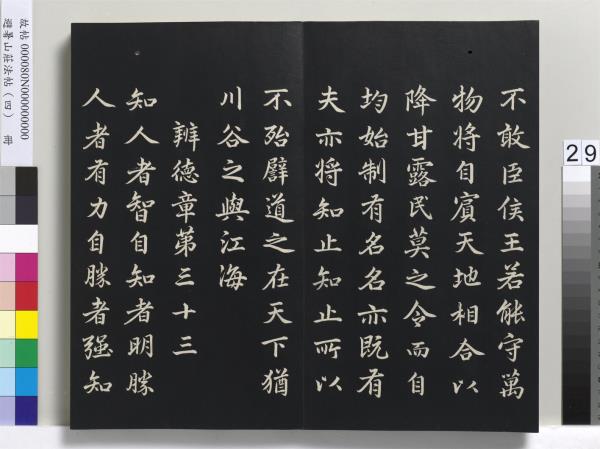 不敢臣侯王若能守萬
物將自賓天地相合以
降甘露民莫之令而自
均始制有名名亦既有
夫亦将知止知止所以
不殆譬道之在天下猶
川谷之與江海
辨德章第三十三
知人者智自知者明勝
人者有力自勝者强知
故帖 000080N000000000
避暑山莊法帖(四) 冊
29